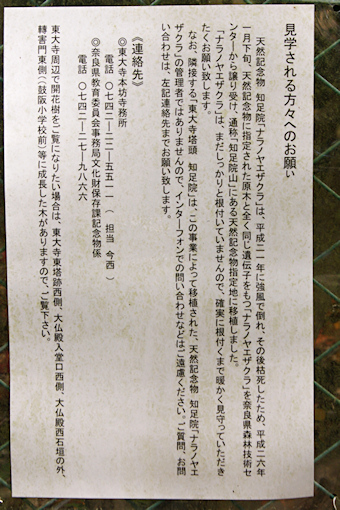 見学される方々へのお願い
天然記念物 知足院「ナラノヤエザクラ」は、平成二一年に強風で倒れ、その後枯死したため、平成二六年
一月下旬、天然記念物に指定された原木と全く同じ遺伝子をもつ「ナラノヤエザクラ」を奈良県森林技術セ
ンターから譲り受け、通称「知足院山」にある天然記念物指定地に移植しました。
「ナラノヤエザクラ」は、まだしっかりと根付いていませんので、確実に根付くまで暖かく見守っていただき
たくお願い致します。
なお、隣接する「東大寺塔頭 知足院」は、この事業によって移植された、天然記念物 知足院「ナラノヤエ
ザクラ」の管理者ではありませんので、インターフォンでの問い合わせなどはご遠慮ください。ご質問、お問
い合わせは、左記連絡先までお願い致します。
《連絡先》
◎東大寺本坊寺務所
電話 〇七四二―二二―五五一一 ( 担当 今西 )
◎奈良県教育委員会事務局文化財保存課記念物係
電話 〇七四二―二七―九八六六
東大寺周辺で開花樹をご覧になりたい場合は、東大寺東塔跡西側、大仏殿入堂口西側、大仏殿西石垣の外、
轉害門東側(鼓阪小学校前)等に成長した木がありますので、ご覧下さい。